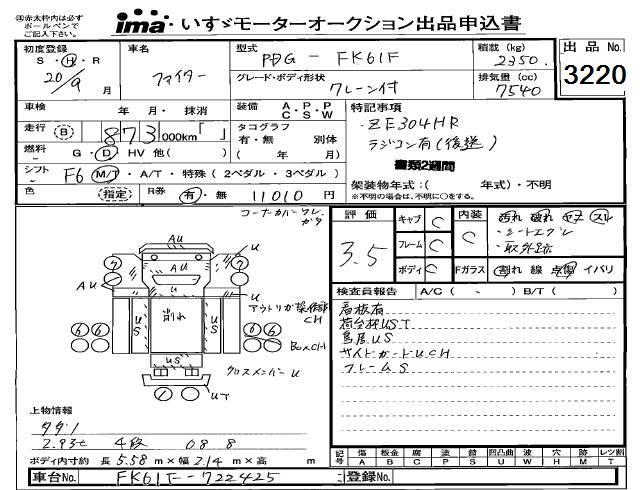 ④赤太枠内は必ずボールペンでご記入下さい。
ima・いすゞモーターオークション出品申込書
出品No. 3220
初度登録 S・H・R 20/9 月
車名 ファイター
型式 PDG - FK61F
グレード・ボディ形状 クレーン付
積載 (kg) 2350
排気量 (cc) 7540
車検 年 月・ 抹消
装備 A.P.P C.S.W
特記事項
・ZE304HR
ラジコン有(後送)
書類2週間
走行 (B) 873000km「 」
タコグラフ 有・無 別体
( 年 月)
燃料 G・D・HV 他( )
架装物年式:( 年式)・不明
※不明の場合は、不明に○をする。
シフト F6 M/T・A/T・特殊(2ペダル・3ペダル)
色 (指定) R券 有・無 11010 円
コーナーカバーワレ、ガタ
AU
U
AU
AU
U
アウトリガ操作部
CH
削れ
US
US
US
BoxCH
クロスメンバーU
UT
評価 3.5
キャブ C
フレーム C
ボディ C
内装 C
汚れ 破れ コゲ スレ
・シートコゲレ
・取外跡
Fガラス 割れ 線 点傷 イバリ
検査員報告 A/C( - ) B/T( )
看板有
荷台枠UST
鳥居US
サイドガードUCH
フレームS
上物情報
タダノ
2.93t 4段 08 8
ボディ内寸約 長 5.58 m×幅 2.14 m×高 m
記号 傷 A 板金 B 腐 C 塗 P 錆 S 凹凸曲 U 波 W 穴 H 跡 M レツ割 T
車台No. FK61F-722425
登録No.